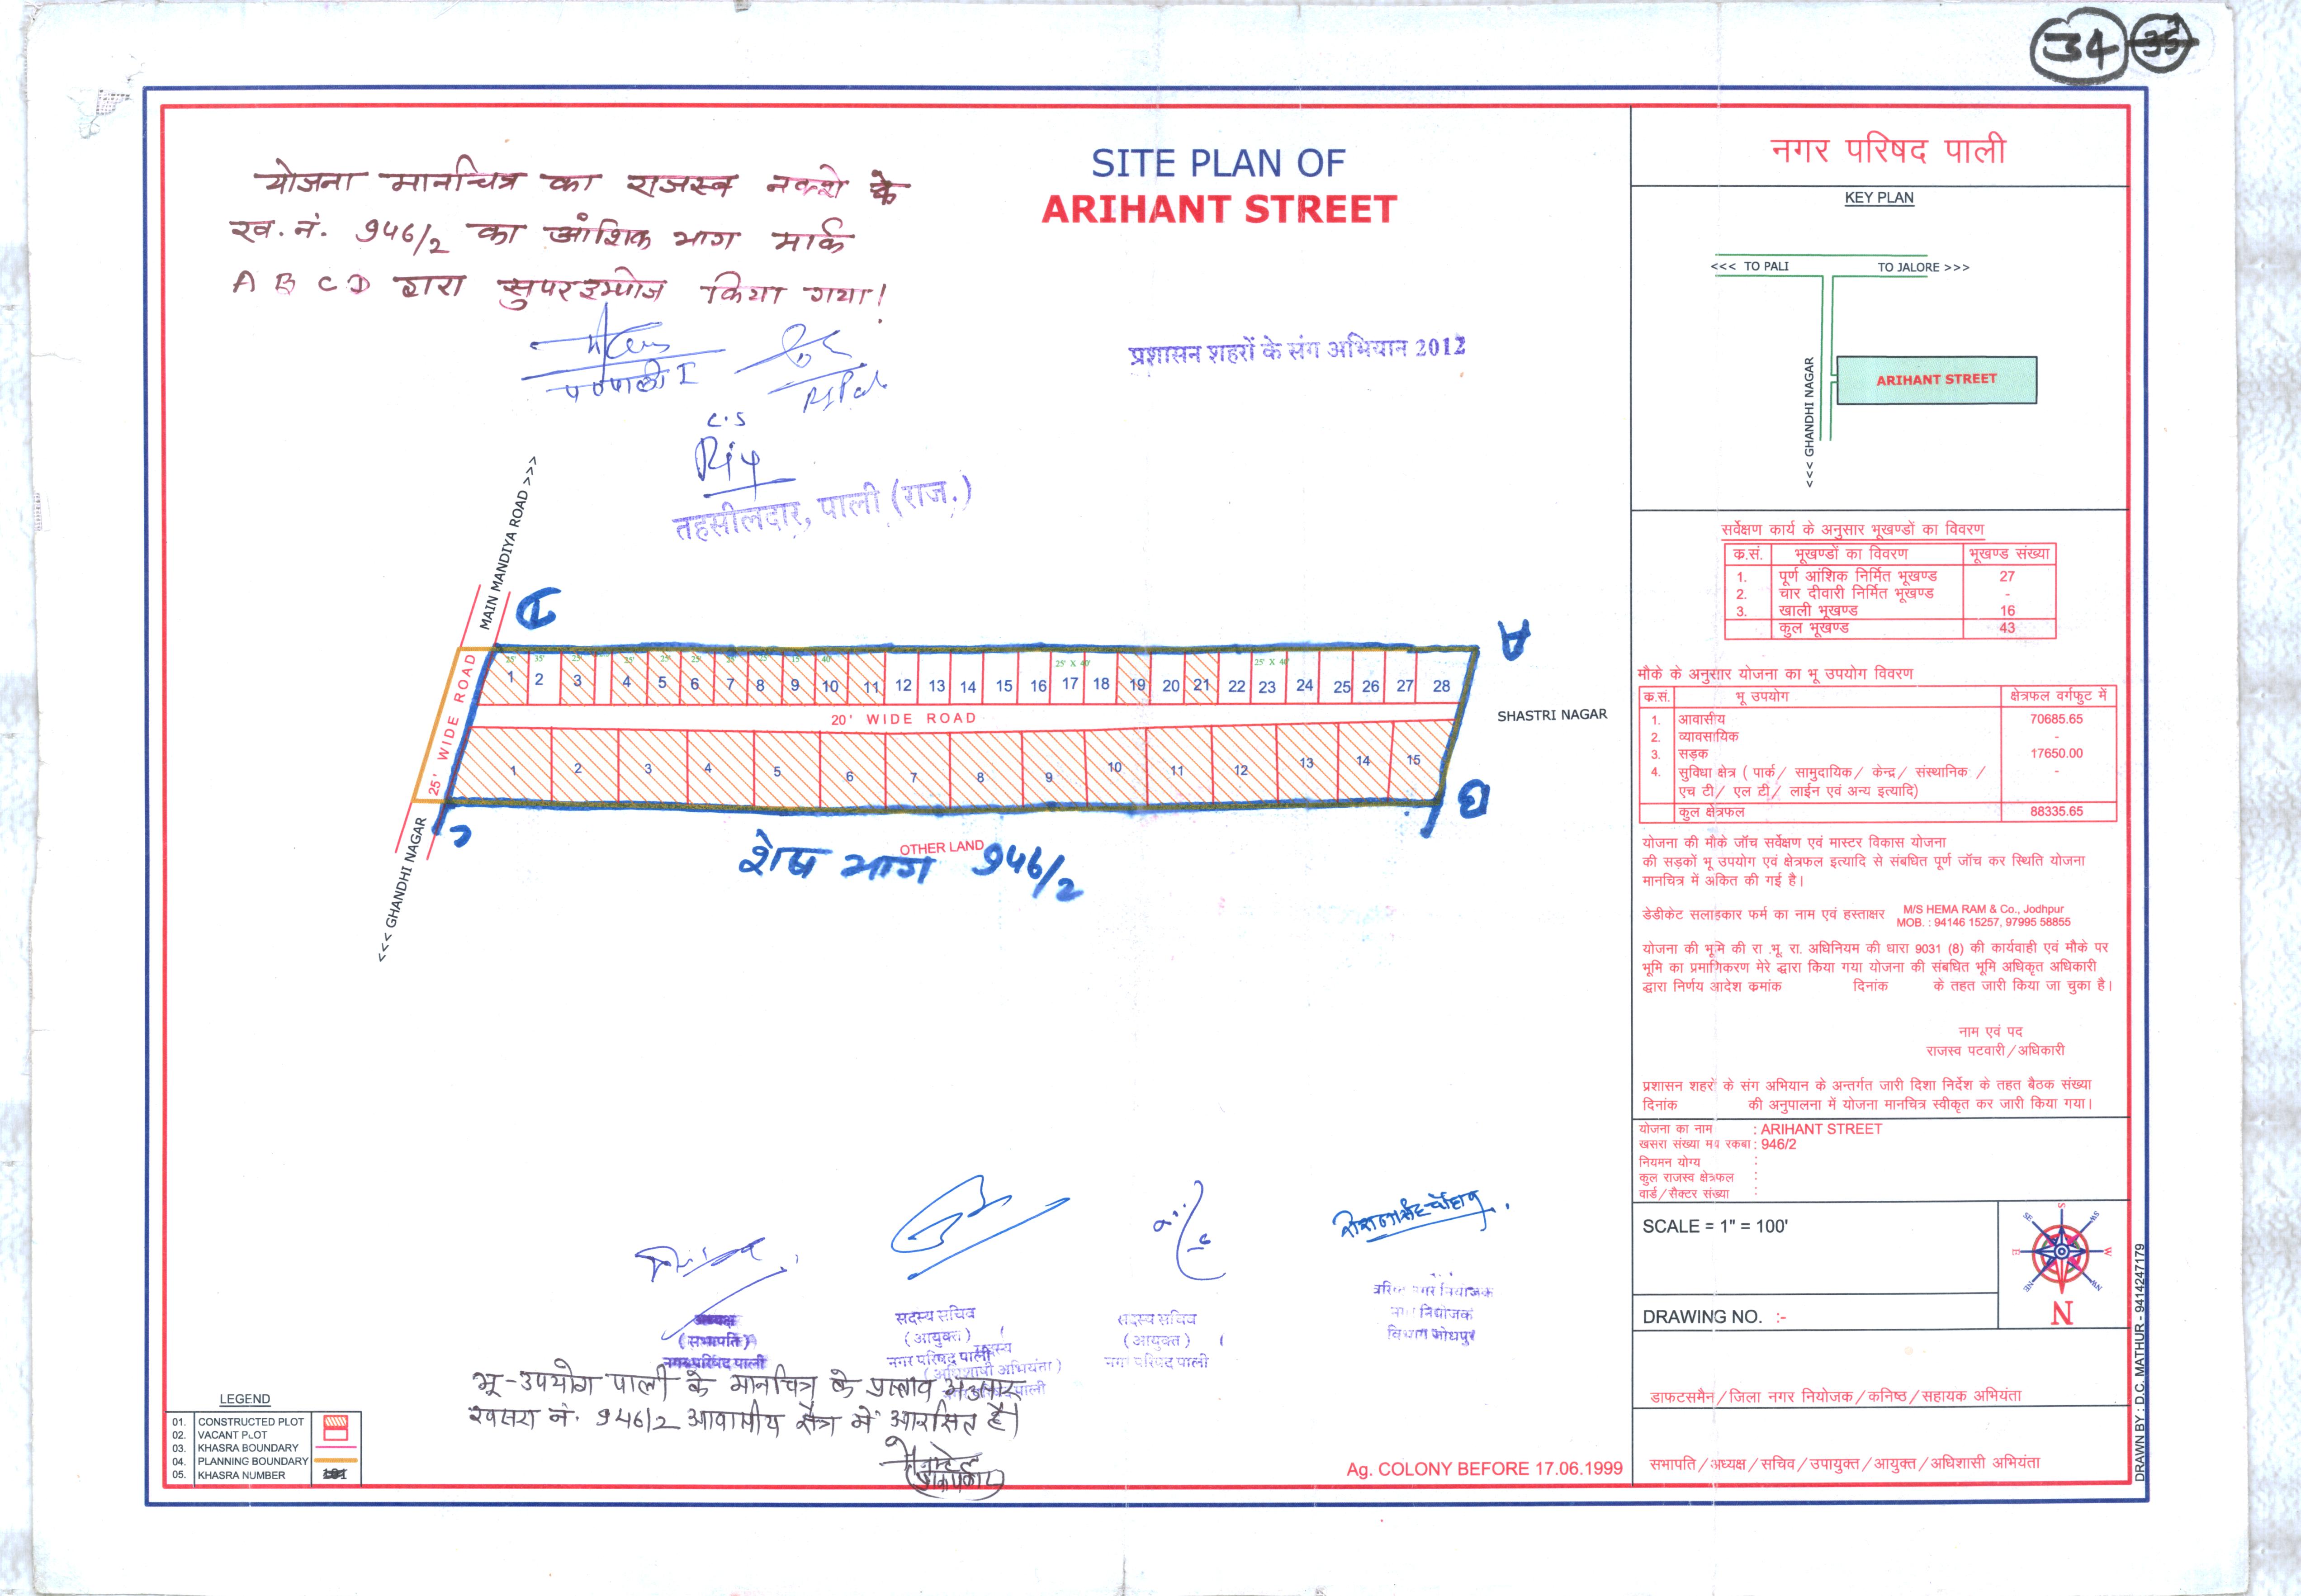 34 35
योजना मानचित्र का राजस्व नक्शे के
ख.नं. 946/2 का आंशिक भाग मार्क
A B C D द्वारा सुपरइम्पोज किया गया!
C.S
तहसीलदार, पाली (राज.)
SITE PLAN OF
ARIHANT STREET
प्रशासन शहरों के संग अभियान 2012
MAIN MANDIYA ROAD >>>
25' WIDE ROAD
<<< GHANDHI NAGAR
A
B
C
D
25' 35' 25' 25' 25' 25' 25' 25' 15' 40' 25' X 40' 25' X 40'
1 2 3 4 5 6 7 8 9 10 11 12 13 14 15 16 17 18 19 20 21 22 23 24 25 26 27 28
20' WIDE ROAD
1 2 3 4 5 6 7 8 9 10 11 12 13 14 15
SHASTRI NAGAR
OTHER LAND
शेष भाग 946/2
अध्यक्ष
(सभापति)
नगर परिषद पाली
सदस्य सचिव
(आयुक्त)
नगर परिषद पाली
सदस्य
(अधिशाषी अभियंता)
सदस्य सचिव
(आयुक्त)
नगर परिषद पाली
वरिष्ठ नगर नियोजक
नगर नियोजक
विभाग जोधपुर
भू-उपयोग पाली के मानचित्र के प्रस्ताव अनुसार
खसरा नं. 946/2 आवासीय क्षेत्र में आरक्षित है।
LEGEND
01. CONSTRUCTED PLOT
02. VACANT PLOT
03. KHASRA BOUNDARY
04. PLANNING BOUNDARY
05. KHASRA NUMBER
Ag. COLONY BEFORE 17.06.1999
नगर परिषद पाली
KEY PLAN
<<< TO PALI TO JALORE >>>
ARIHANT STREET
<<< GHANDHI NAGAR
सर्वेक्षण कार्य के अनुसार भूखण्डों का विवरण
क्र.सं. भूखण्डों का विवरण भूखण्ड संख्या
1. पूर्ण आंशिक निर्मित भूखण्ड 27
2. चार दीवारी निर्मित भूखण्ड -
3. खाली भूखण्ड 16
कुल भूखण्ड 43
मौके के अनुसार योजना का भू उपयोग विवरण
क्र.सं. भू उपयोग क्षेत्रफल वर्गफुट में
1. आवासीय 70685.65
2. व्यावसायिक -
3. सड़क 17650.00
4. सुविधा क्षेत्र ( पार्क/ सामुदायिक/ केन्द्र/ संस्थानिक / -
एच टी/ एल टी/ लाईन एवं अन्य इत्यादि)
कुल क्षेत्रफल 88335.65
योजना की मौके जाँच सर्वेक्षण एवं मास्टर विकास योजना
की सड़कों भू उपयोग एवं क्षेत्रफल इत्यादि से संबधित पूर्ण जाँच कर स्थिति योजना
मानचित्र में अंकित की गई है।
डेडीकेट सलाहकार फर्म का नाम एवं हस्ताक्षर M/S HEMA RAM & Co., Jodhpur
MOB. : 94146 15257, 97995 58855
योजना की भूमि की रा .भू. रा. अधिनियम की धारा 9031 (8) की कार्यवाही एवं मौके पर
भूमि का प्रमाणिकरण मेरे द्वारा किया गया योजना की संबधित भूमि अधिकृत अधिकारी
द्वारा निर्णय आदेश क्रमांक दिनांक के तहत जारी किया जा चुका है।
नाम एवं पद
राजस्व पटवारी/अधिकारी
प्रशासन शहरों के संग अभियान के अन्तर्गत जारी दिशा निर्देश के तहत बैठक संख्या
दिनांक की अनुपालना में योजना मानचित्र स्वीकृत कर जारी किया गया।
योजना का नाम : ARIHANT STREET
खसरा संख्या मय रकबा : 946/2
नियमन योग्य :
कुल राजस्व क्षेत्रफल :
वार्ड/सैक्टर संख्या :
SCALE = 1" = 100'
S SW W NW N NE E SE
DRAWING NO. :-
डाफटसमैन/जिला नगर नियोजक/कनिष्ठ/सहायक अभियंता
सभापति/अध्यक्ष/सचिव/उपायुक्त/आयुक्त/अधिशासी अभियंता
DRAWN BY : D.C. MATHUR - 9414247179